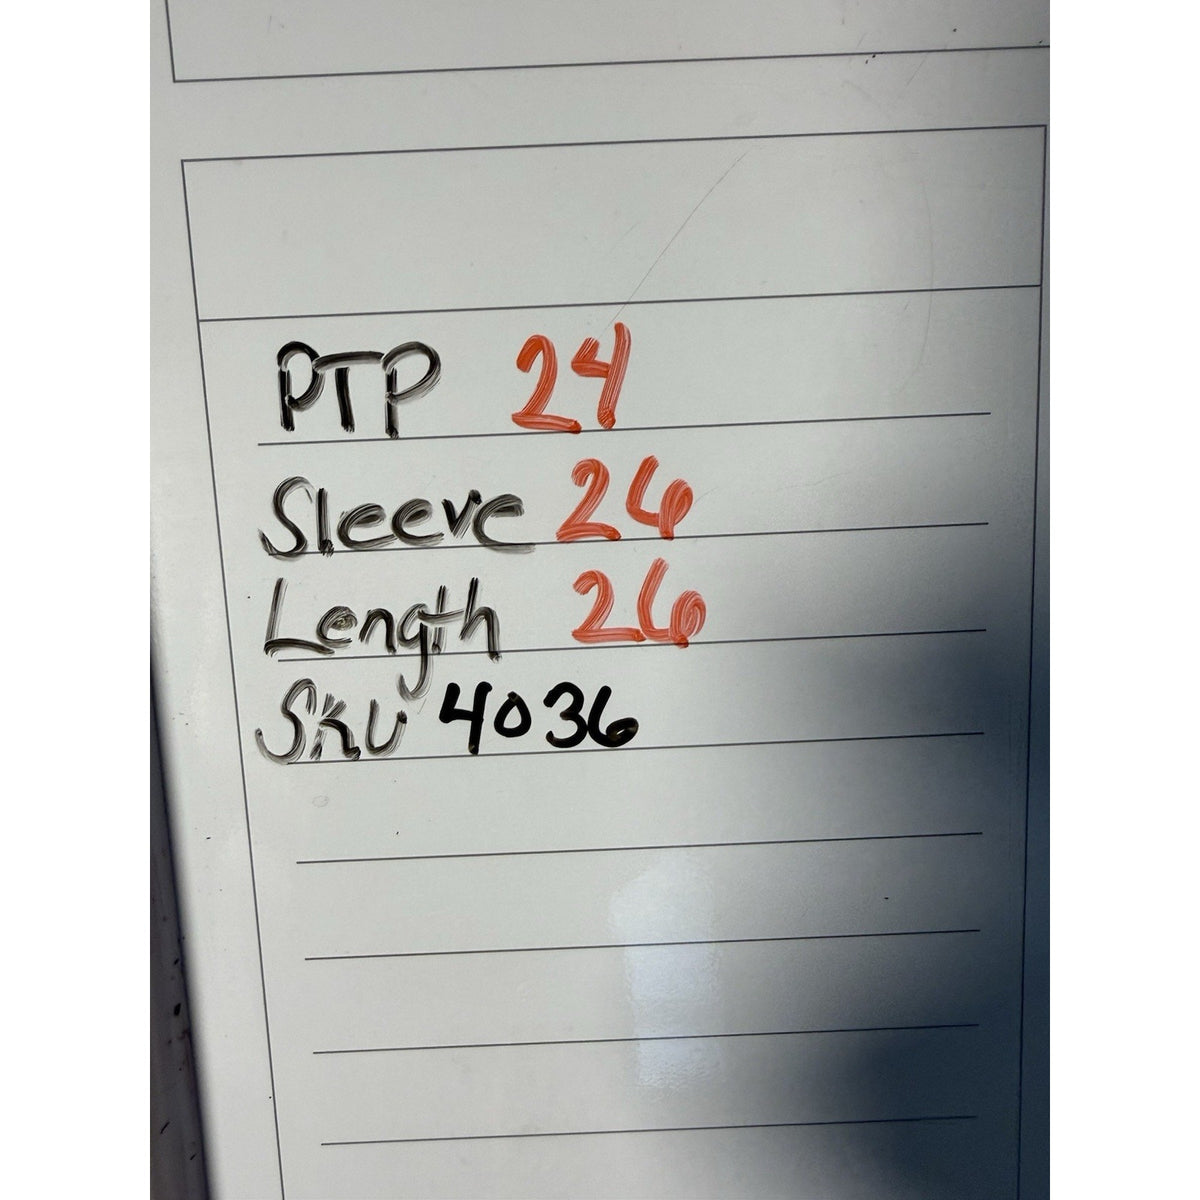 PTP 24
Sleeve 26
Length 26
SKU 4036